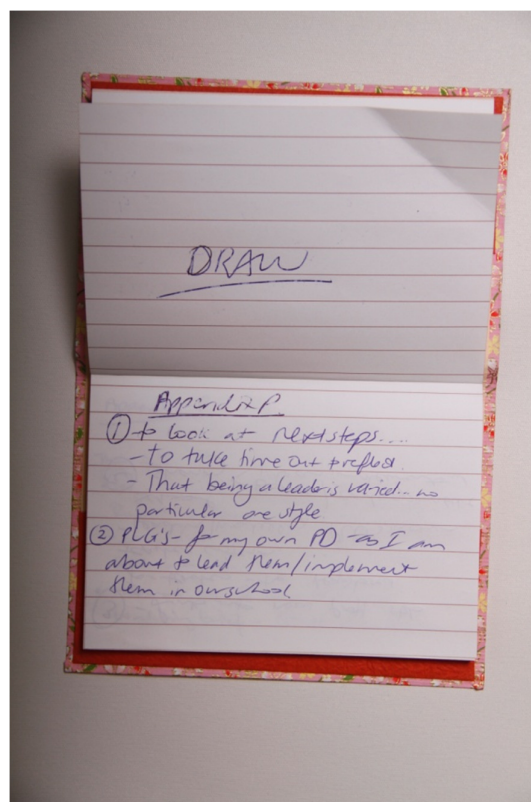 DRAW
Appendix P
① to look at next steps....
- To take time out + reflect.
- That being a leader is varied... no
particular one style
② PLG's - for my own PD - as I am
about to lead them/implement
them in our school